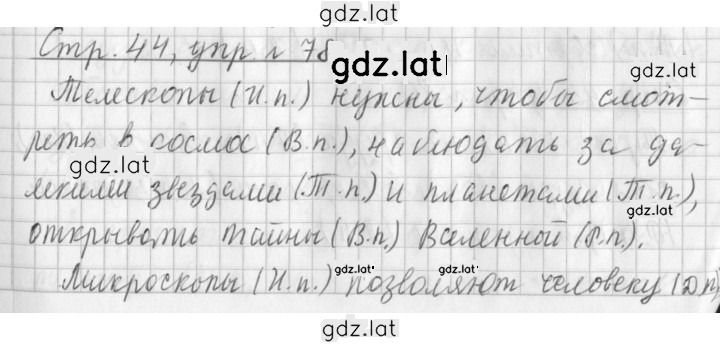 gdz.lat
Стр. 44, упр. л 7б
gdz.lat
Телескопы (И.п.) нужны, чтобы смот-
реть в космос (В.п.), наблюдать за да-
gdz.lat
лёкими звездами (Т.п.) и планетами (Т.п.),
gdz.lat
открывать тайны (В.п.) Вселенной (Р.п.).
gdz.lat gdz.lat
Микроскопы (И.п.) позволяют человеку (Д.п.)
gdz.lat